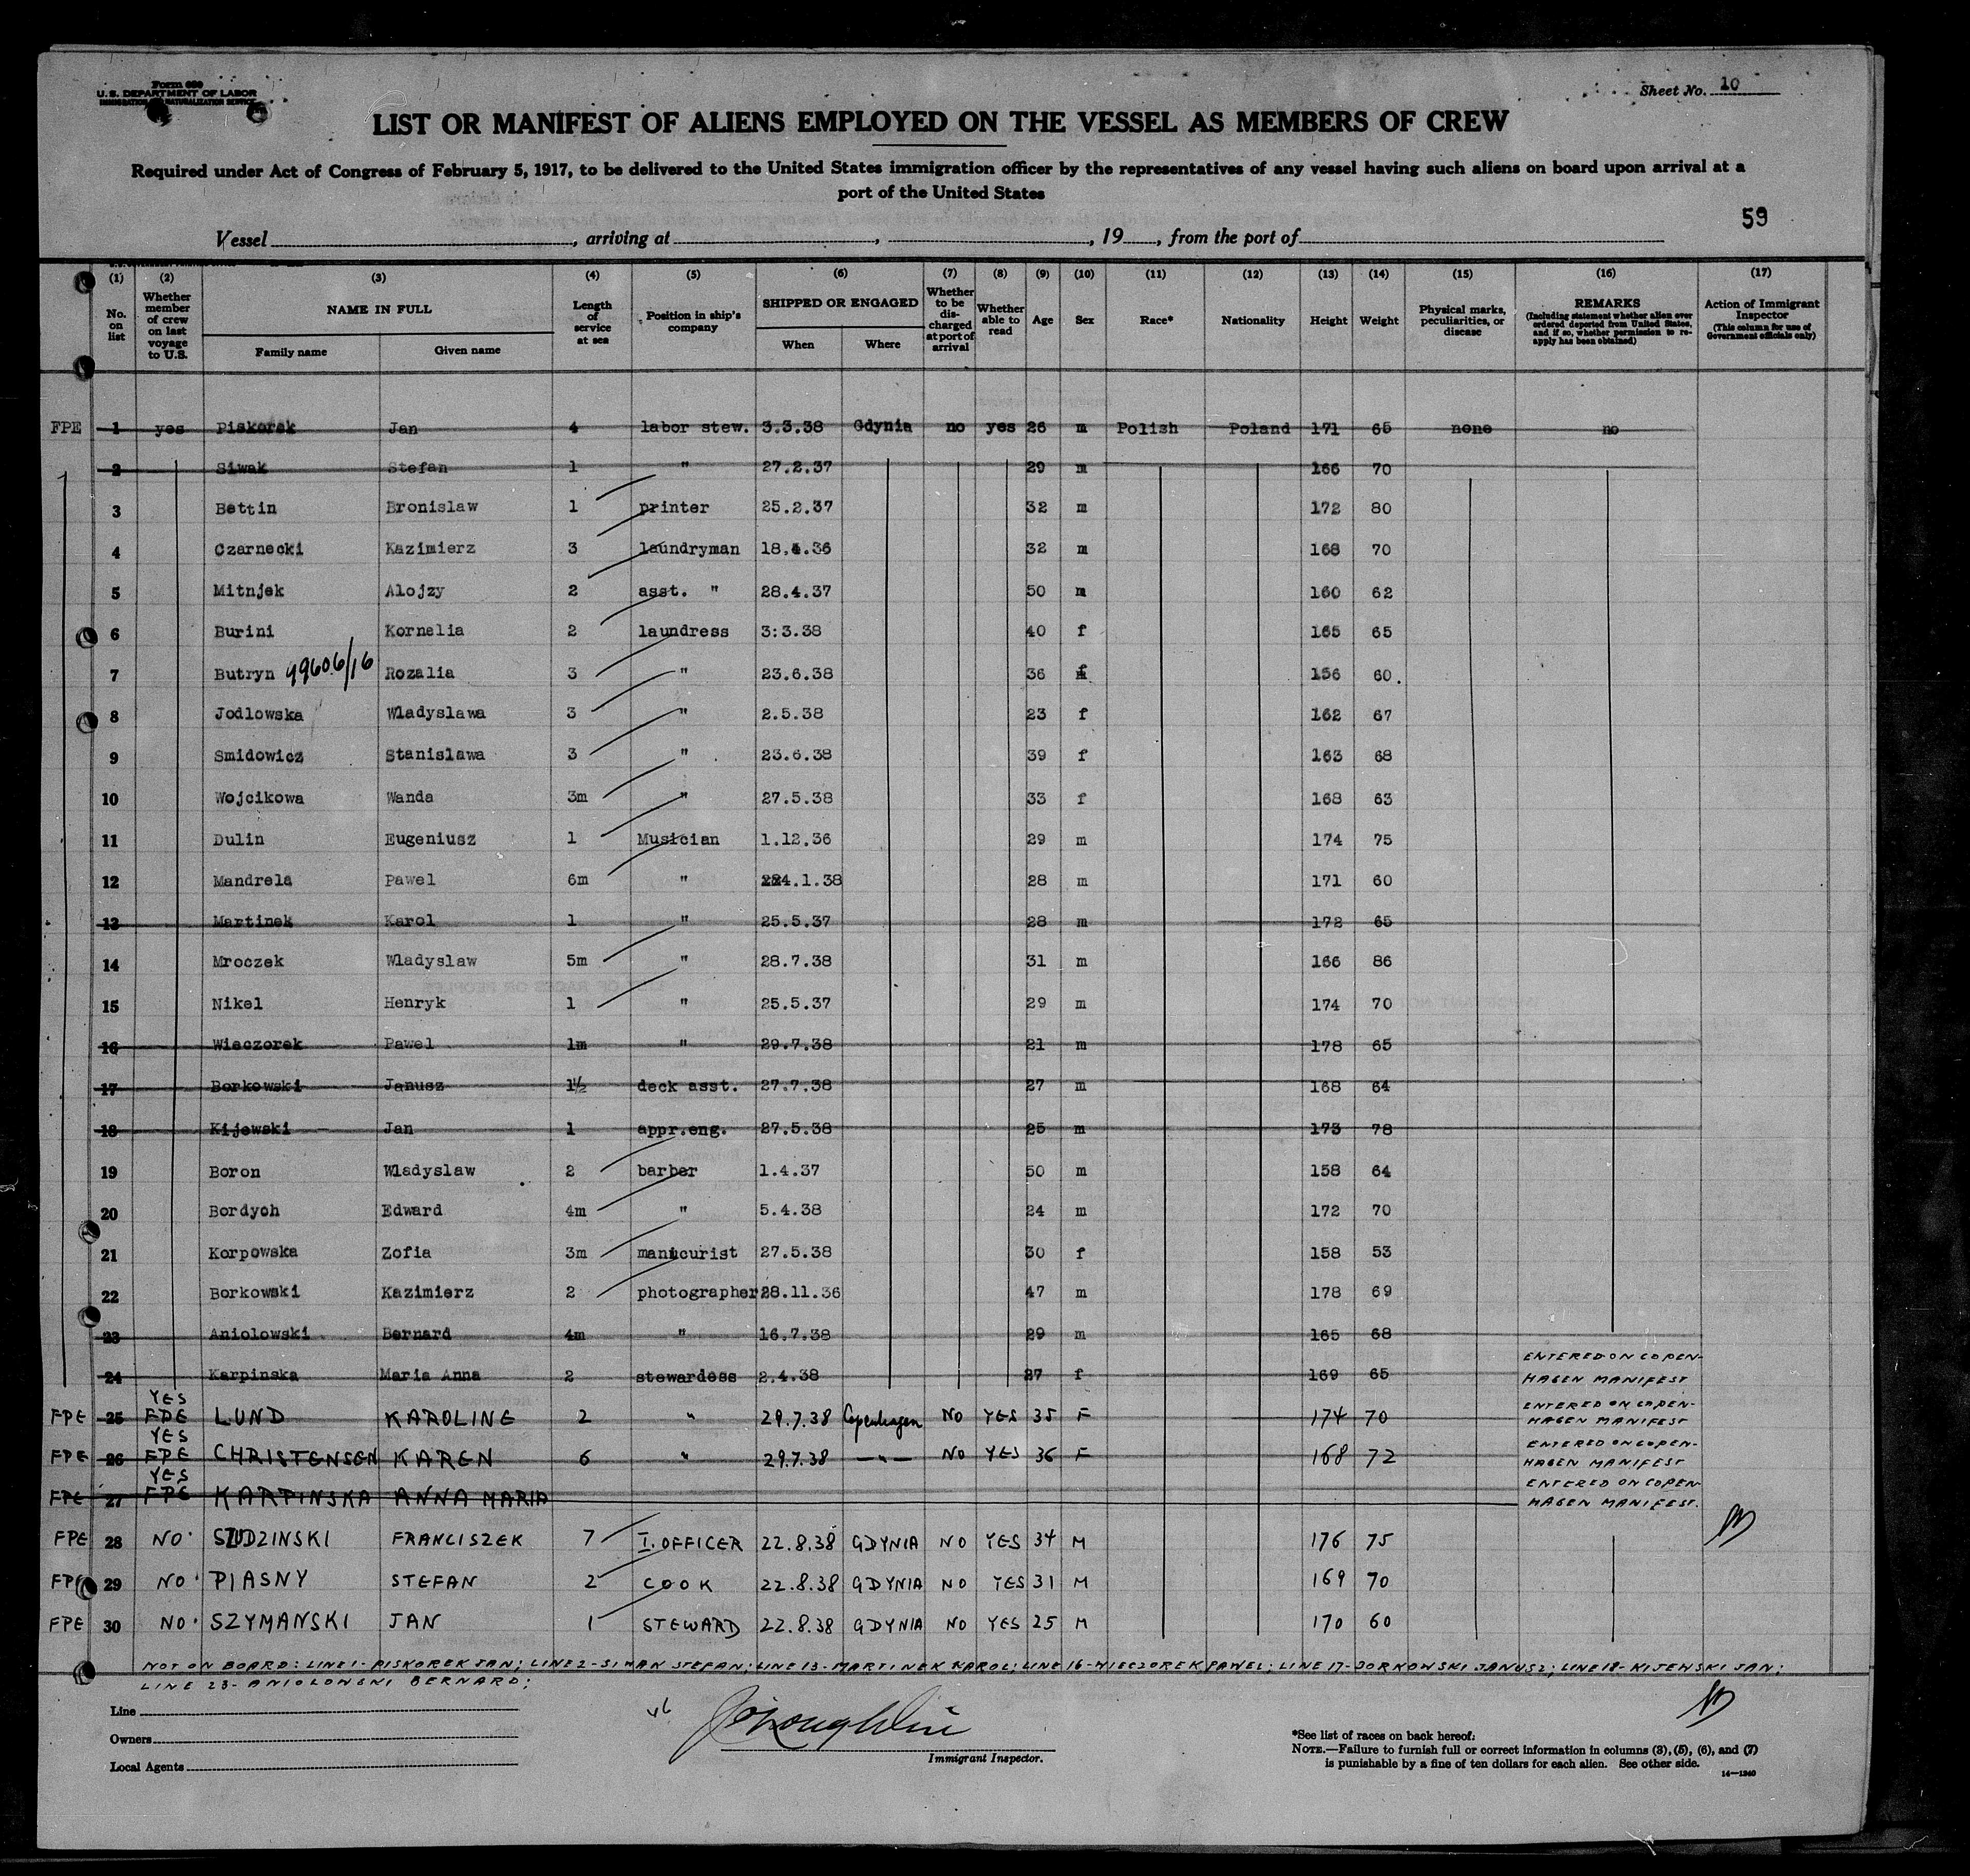 Form 689
U.S. DEPARTMENT OF LABOR
IMMIGRATION NATURALIZATION SERVICE
Sheet No. 10
LIST OR MANIFEST OF ALIENS EMPLOYED ON THE VESSEL AS MEMBERS OF CREW
Required under Act of Congress of February 5, 1917, to be delivered to the United States immigration officer by the representatives of any vessel having such aliens on board upon arrival at a
port of the United States
59
Vessel , arriving at , , 19 , from the port of
(1) (2) (3) (4) (5) (6) (7) (8) (9) (10) (11) (12) (13) (14) (15) (16) (17)
No. on list Whether member of crew on last voyage to U.S. NAME IN FULL Family name Given name Length of service at sea Position in ship's company SHIPPED OR ENGAGED When Where Whether to be discharged at port of arrival Whether able to read Age Sex Race* Nationality Height Weight Physical marks, peculiarities, or disease REMARKS (Including statement whether alien ever ordered deported from United States, and if so, whether permission to re-apply has been obtained) Action of Immigrant Inspector (This column for use of Government officials only)
FPE 1 yes Piskorek Jan 4 labor stew. 3.3.38 Gdynia no yes 26 m Polish Poland 171 65 none no
2 Siwak Stefan 1 " 27.2.37 29 m 166 70
3 Bettin Bronislaw 1 printer 25.2.37 32 m 172 80
4 Czarnecki Kazimierz 3 laundryman 18.4.36 32 m 168 70
5 Mitnjek Alojzy 2 asst. " 28.4.37 50 m 160 62
6 Burini Kornelia 2 laundress 3:3.38 40 f 165 65
7 Butryn 99606/16 Rozalia 3 " 23.6.38 36 f 156 60.
8 Jodlowska Wladyslawa 3 " 2.5.38 23 f 162 67
9 Smidowicz Stanislawa 3 " 23.6.38 39 f 163 68
10 Wojcikowa Wanda 3m " 27.5.38 33 f 168 63
11 Dulin Eugeniusz 1 Musician 1.12.36 29 m 174 75
12 Mandrela Pawel 6m " 24.1.38 28 m 171 60
13 Martinek Karol 1 " 25.5.37 28 m 172 65
14 Mroczek Wladyslaw 5m " 28.7.38 31 m 166 86
15 Nikel Henryk 1 " 25.5.37 29 m 174 70
16 Wieczorek Pawel 1m " 29.7.38 21 m 178 65
17 Borkowski Janusz 1½ deck asst. 27.7.38 27 m 168 64
18 Kijewski Jan 1 appr.eng. 27.5.38 25 m 173 78
19 Boron Wladyslaw 2 barber 1.4.37 50 m 158 64
20 Bordych Edward 4m " 5.4.38 24 m 172 70
21 Korpowska Zofia 3m manicurist 27.5.38 30 f 158 53
22 Borkowski Kazimierz 2 photographer 28.11.36 47 m 178 69
23 Aniolowski Bernard 4m " 16.7.38 29 m 165 68
24 Karpinska Maria Anna 2 stewardess 2.4.38 27 f 169 65 ENTERED ON COPENHAGEN MANIFEST
FPE 25 YES FPE LUND KAROLINE 2 " 29.7.38 Copenhagen NO YES 35 F 174 70 ENTERED ON COPENHAGEN MANIFEST
FPE 26 YES FPE CHRISTENSEN KAREN 6 " 29.7.38 —"— NO YES 36 F 168 72 ENTERED ON COPENHAGEN MANIFEST
FPE 27 YES FPE KARPINSKA ANNA MARIA ENTERED ON COPENHAGEN MANIFEST.
FPE 28 NO SZUDZINSKI FRANCISZEK 7 I. OFFICER 22.8.38 GDYNIA NO YES 34 M 176 75
FPE 29 NO PIASNY STEFAN 2 COOK 22.8.38 GDYNIA NO YES 31 M 169 70
FPE 30 NO SZYMANSKI JAN 1 STEWARD 22.8.38 GDYNIA NO YES 25 M 170 60
NOT ON BOARD: LINE 1- PISKOREK JAN; LINE 2- SIWAK STEFAN; LINE 13- MARTINEK KAROL; LINE 16- WIECZOREK PAWEL; LINE 17- BORKOWSKI JANUSZ; LINE 18- KIJEWSKI JAN;
LINE 23- ANIOLOWSKI BERNARD;
Line
Owners
Local Agents
Immigrant Inspector.
*See list of races on back hereof.
NOTE.—Failure to furnish full or correct information in columns (3), (5), (6), and (7)
is punishable by a fine of ten dollars for each alien. See other side.
14—1240